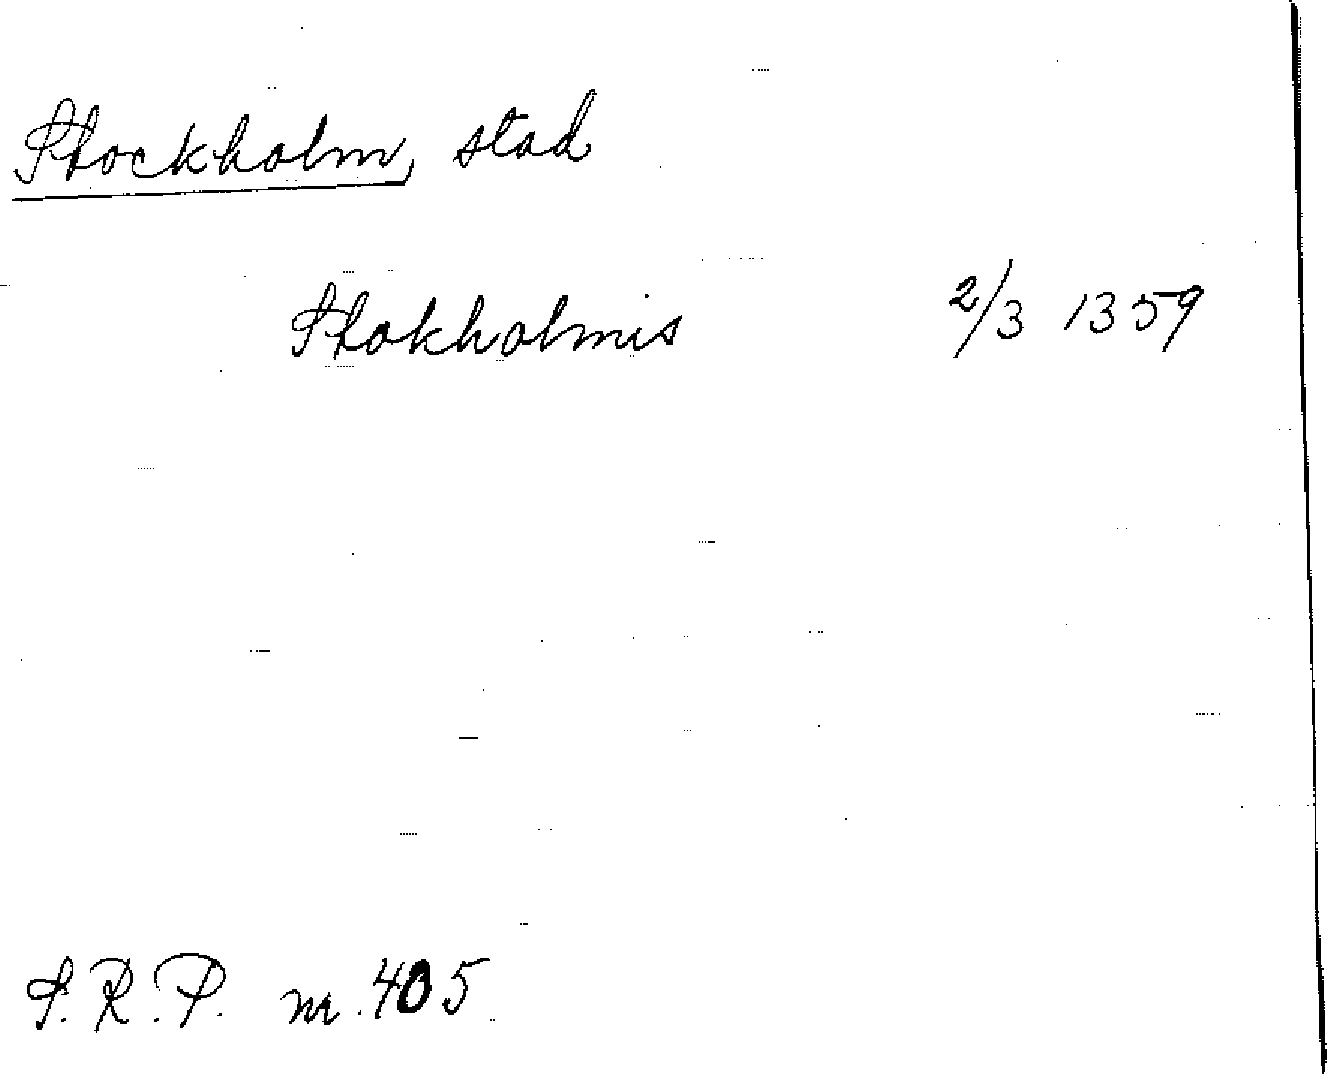 Stockholm, stad
Stokholmis 2/3 1359
S.R.P. nr. 405